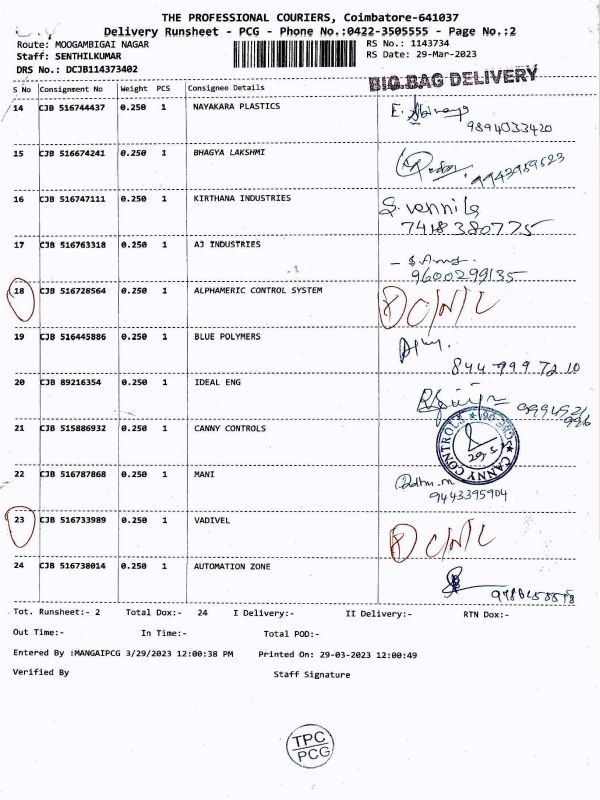 THE PROFESSIONAL COURIERS, Coimbatore-641037
Delivery Runsheet - PCG - Phone No.:0422-3505555 - Page No.:2
Route: MOOGAMBIGAI NAGAR RS No.: 1143734
Staff: SENTHILKUMAR RS Date: 29-Mar-2023
DRS No.: DCJB114373402
BIG BAG DELIVERY
S No Consignment No Weight PCS Consignee Details
14 CJB 516744437 0.250 1 NAYAKARA PLASTICS
9894033420
15 CJB 516674241 0.250 1 BHAGYA LAKSHMI
9943959523
16 CJB 516747111 0.250 1 KIRTHANA INDUSTRIES S. vennila
7418380775
17 CJB 516763318 0.250 1 AJ INDUSTRIES
9600299135
18 CJB 516728564 0.250 1 ALPHAMERIC CONTROL SYSTEM C/N/L
19 CJB 516445886 0.250 1 BLUE POLYMERS
844 999 72 10
20 CJB 89216354 0.250 1 IDEAL ENG
21 CJB 515886932 0.250 1 CANNY CONTROLS CANNY CONTROLS
22 CJB 516787868 0.250 1 MANI
9443395904
23 CJB 516733989 0.250 1 VADIVEL C/N/L
24 CJB 516738014 0.250 1 AUTOMATION ZONE
Tot. Runsheet:- 2 Total Dox:- 24 I Delivery:- II Delivery:- RTN Dox:-
Out Time:- In Time:- Total POD:-
Entered By :MANGAIPCG 3/29/2023 12:00:38 PM Printed On: 29-03-2023 12:00:49
Verified By Staff Signature
TPC
PCG